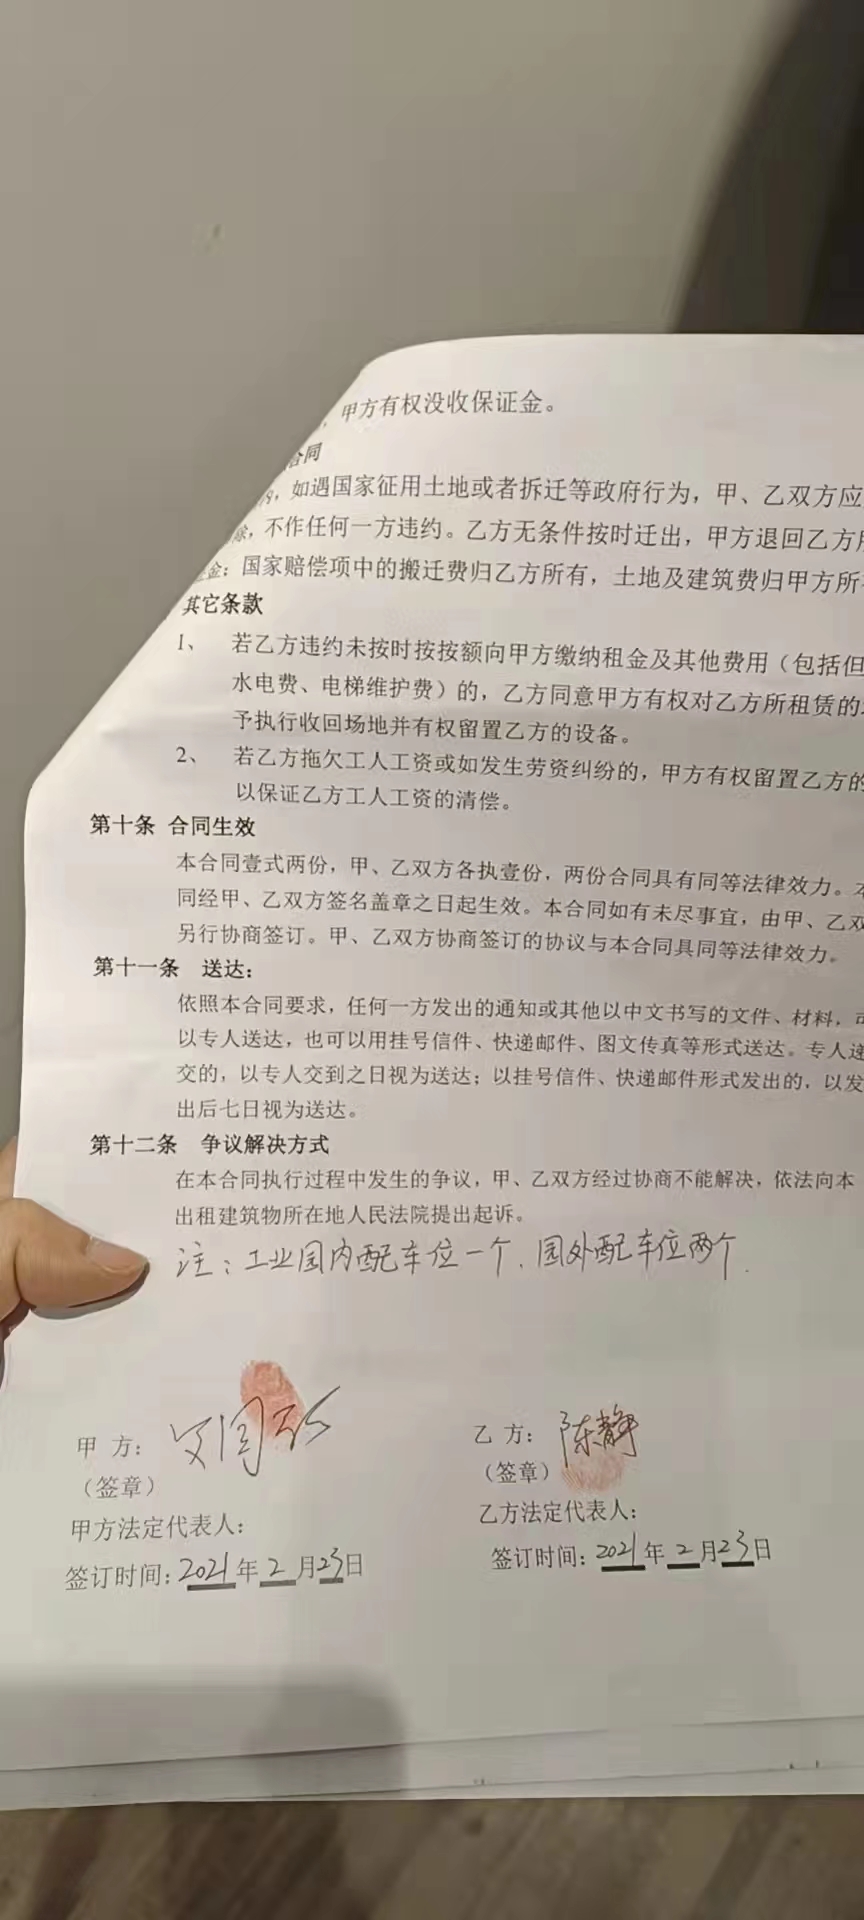 ，甲方有权没收保证金。
合同
内，如遇国家征用土地或者拆迁等政府行为，甲、乙双方应
除，不作任何一方违约。乙方无条件按时迁出，甲方退回乙方
金；国家赔偿项中的搬迁费归乙方所有，土地及建筑费归甲方所
其它条款
1、 若乙方违约未按时按按额向甲方缴纳租金及其他费用（包括但
水电费、电梯维护费）的，乙方同意甲方有权对乙方所租赁的
予执行收回场地并有权留置乙方的设备。
2、 若乙方拖欠工人工资或如发生劳资纠纷的，甲方有权留置乙方的
以保证乙方工人工资的清偿。
第十条 合同生效
本合同壹式两份，甲、乙双方各执壹份，两份合同具有同等法律效力。本
同经甲、乙双方签名盖章之日起生效。本合同如有未尽事宜，由甲、乙双
另行协商签订。甲、乙双方协商签订的协议与本合同具同等法律效力。
第十一条 送达：
依照本合同要求，任何一方发出的通知或其他以中文书写的文件、材料，可
以专人送达，也可以用挂号信件、快递邮件、图文传真等形式送达。专人递
交的，以专人交到之日视为送达；以挂号信件、快递邮件形式发出的，以发
出后七日视为送达。
第十二条 争议解决方式
在本合同执行过程中发生的争议，甲、乙双方经过协商不能解决，依法向本
出租建筑物所在地人民法院提出起诉。
注：工业园内配车位一个．园外配车位两个．
甲 方： 乙 方：陈静
（签章） （签章）
甲方法定代表人： 乙方法定代表人：
签订时间：2021年2月23日 签订时间：2021年2月23日